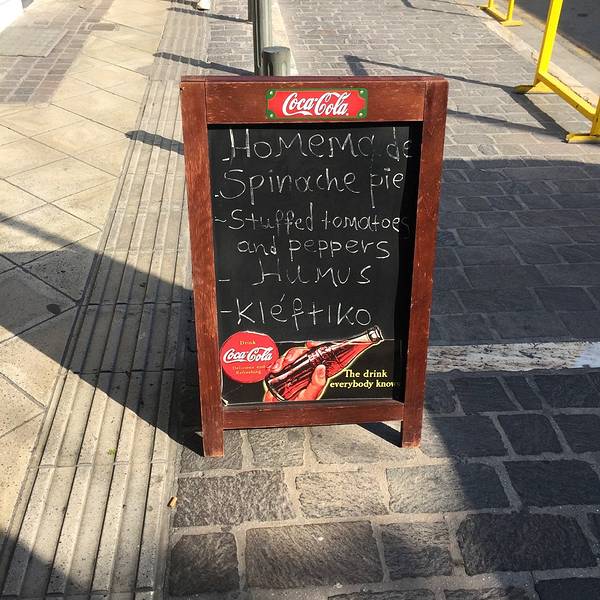 Coca-Cola
-Homemade
-Spinache pie
-Stuffed tomatoes
and peppers
- Humus
-Kléftiko
Drink
Coca-Cola
Delicious and
Refreshing
The drink
everybody knows